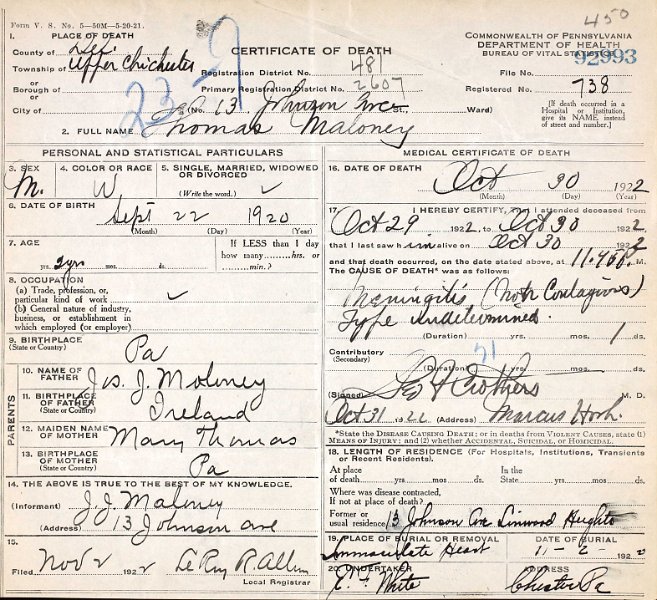 Form V. S. No. 5—50M—5-20-21.
450
1. PLACE OF DEATH
County of Del.
Township of Upper Chichester
or
Borough of
or
City of
23-9
CERTIFICATE OF DEATH
Registration District No. 481
Primary Registration District No. 2607
(No. 13 Johnson Ave St., Ward)
COMMONWEALTH OF PENNSYLVANIA
DEPARTMENT OF HEALTH
BUREAU OF VITAL STATISTICS
92993
File No.
Registered No. 738
[If death occurred in a Hospital or Institution, give its NAME, instead of street and number.]
2. FULL NAME Thomas Maloney
PERSONAL AND STATISTICAL PARTICULARS
3. SEX
M.
4. COLOR OR RACE
W
5. SINGLE, MARRIED, WIDOWED OR DIVORCED
(Write the word.)
6. DATE OF BIRTH
Sept 22 1920
(Month) (Day) (Year)
7. AGE
2 yrs
yrs. mos. ds.
If LESS than 1 day
how many hrs. or
min.?
8. OCCUPATION
(a) Trade, profession, or
particular kind of work
(b) General nature of industry,
business, or establishment in
which employed (or employer)
9. BIRTHPLACE
(State or Country)
Pa
PARENTS
10. NAME OF FATHER
Jas. J. Moloney
11. BIRTHPLACE OF FATHER
(State or Country)
Ireland
12. MAIDEN NAME OF MOTHER
Mary Thomas
13. BIRTHPLACE OF MOTHER
(State or Country)
Pa
14. THE ABOVE IS TRUE TO THE BEST OF MY KNOWLEDGE.
(Informant) J. J. Maloney
(Address) 13 Johnson Ave
15.
Filed Nov 2 1922 LeRoy R. Allen
Local Registrar
MEDICAL CERTIFICATE OF DEATH
16. DATE OF DEATH
Oct 30 1922
(Month) (Day) (Year)
17. I HEREBY CERTIFY, That I attended deceased from
Oct 29 1922, to Oct 30 1922
that I last saw him alive on Oct 30 1922
and that death occurred, on the date stated above, at 11.45 P. M.
The CAUSE OF DEATH* was as follows:
Meningitis (Not Contagious)
Type undetermined.
(Duration) yrs. mos. 1 ds.
Contributory
(Secondary)
71
(Duration) yrs. mos. ds.
(Signed) Crothers M. D.
Oct 31 1922 (Address) Marcus Hook.
*State the DISEASE CAUSING DEATH; or in deaths from VIOLENT CAUSES, state (1) MEANS OF INJURY; and (2) whether ACCIDENTAL, SUICIDAL, or HOMICIDAL.
18. LENGTH OF RESIDENCE (For Hospitals, Institutions, Transients or Recent Residents).
At place of death yrs. mos. ds.
In the State yrs. mos. ds.
Where was disease contracted,
if not at place of death?
Former or
usual residence 13 Johnson Ave Linwood Heights
19. PLACE OF BURIAL OR REMOVAL
Immaculate Heart
DATE OF BURIAL
11-2 1922
20. UNDERTAKER
White
ADDRESS
Chester Pa